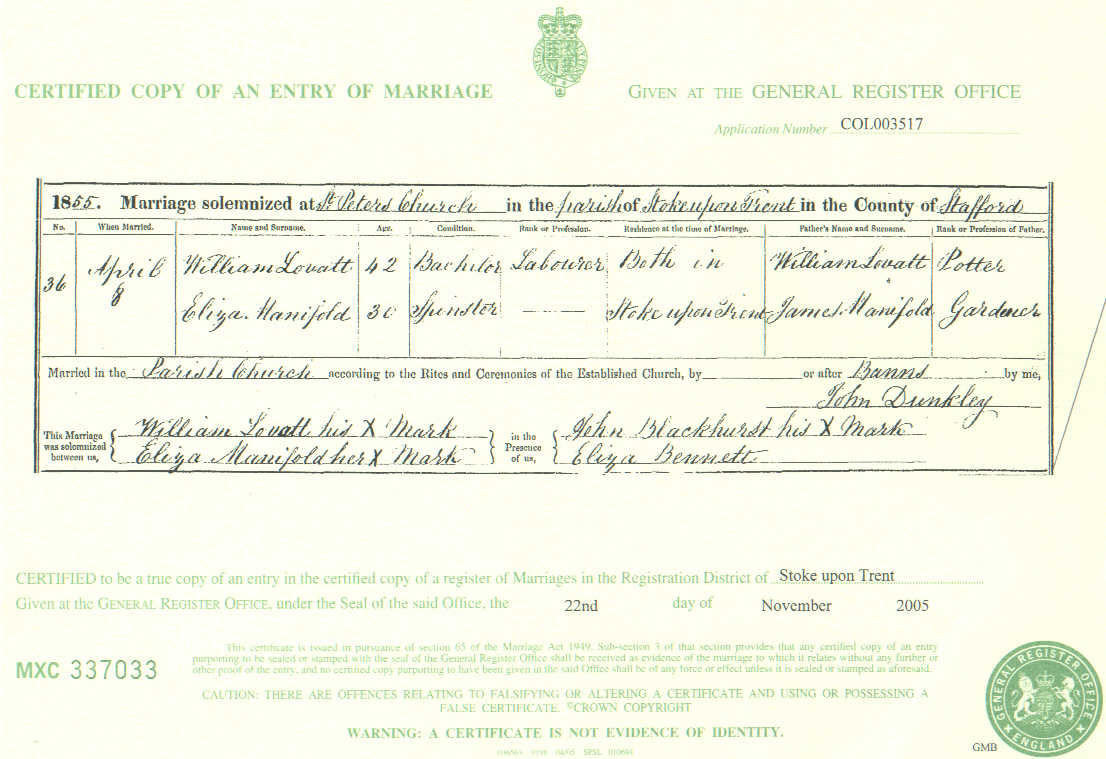 CERTIFIED COPY OF AN ENTRY OF MARRIAGE
GIVEN AT THE GENERAL REGISTER OFFICE
Application Number COL003517
1855. Marriage solemnized at St. Peters Church in the parish of Stoke upon Trent in the County of Stafford
No. When Married. Name and Surname. Age. Condition. Rank or Profession. Residence at the time of Marriage. Father's Name and Surname. Rank or Profession of Father.
36 April 8 William Lovatt 42 Bachelor Labourer Both in William Lovatt Potter
Eliza Manifold 30 Spinster — — Stoke upon Trent James Manifold Gardener
Married in the Parish Church according to the Rites and Ceremonies of the Established Church, by or after Banns by me,
John Dunkley
This Marriage was solemnized between us,
William Lovatt his X Mark
Eliza Manifold her X Mark
in the Presence of us,
John Blackhurst his X Mark
Eliza Bennett
CERTIFIED to be a true copy of an entry in the certified copy of a register of Marriages in the Registration District of Stoke upon Trent
Given at the GENERAL REGISTER OFFICE, under the Seal of the said Office, the 22nd day of November 2005
This certificate is issued in pursuance of section 65 of the Marriage Act 1949. Sub-section 3 of that section provides that any certified copy of an entry
purporting to be sealed or stamped with the seal of the General Register Office shall be received as evidence of the marriage to which it relates without any further or
other proof of the entry, and no certified copy purporting to have been given in the said Office shall be of any force or effect unless it is sealed or stamped as aforesaid.
MXC 337033
CAUTION: THERE ARE OFFENCES RELATING TO FALSIFYING OR ALTERING A CERTIFICATE AND USING OR POSSESSING A
FALSE CERTIFICATE. ©CROWN COPYRIGHT
WARNING: A CERTIFICATE IS NOT EVIDENCE OF IDENTITY.
GENERAL REGISTER OFFICE
ENGLAND
GMB